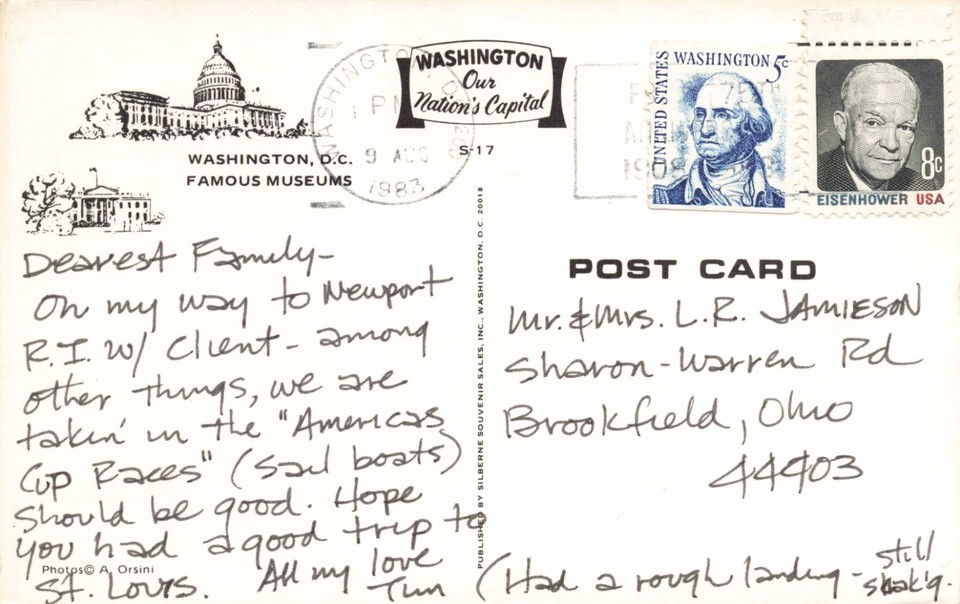 WASHINGTON, D.C.
FAMOUS MUSEUMS
WASHINGTON
Our
Nation's Capital
S-17
WASHINGTON D.C.
PM
9 AUG
1983
UNITED STATES
WASHINGTON 5c
8c
EISENHOWER USA
POST CARD
Dearest Family-
On my way to Newport
R.I. w/ Client - among
other things, we are
takin' in the "Americas
Cup Races" (sail boats)
Should be good. Hope
you had a good trip to
St. Louis. All my love
Tim
Photos© A. Orsini
PUBLISHED BY SILBERNE SOUVENIR SALES, INC., WASHINGTON, D.C. 20018
Mr. & Mrs. L.R. JAMIESON
Sharon-Warren Rd
Brookfield, Ohio
44403
(Had a rough landing - still
shak'g.